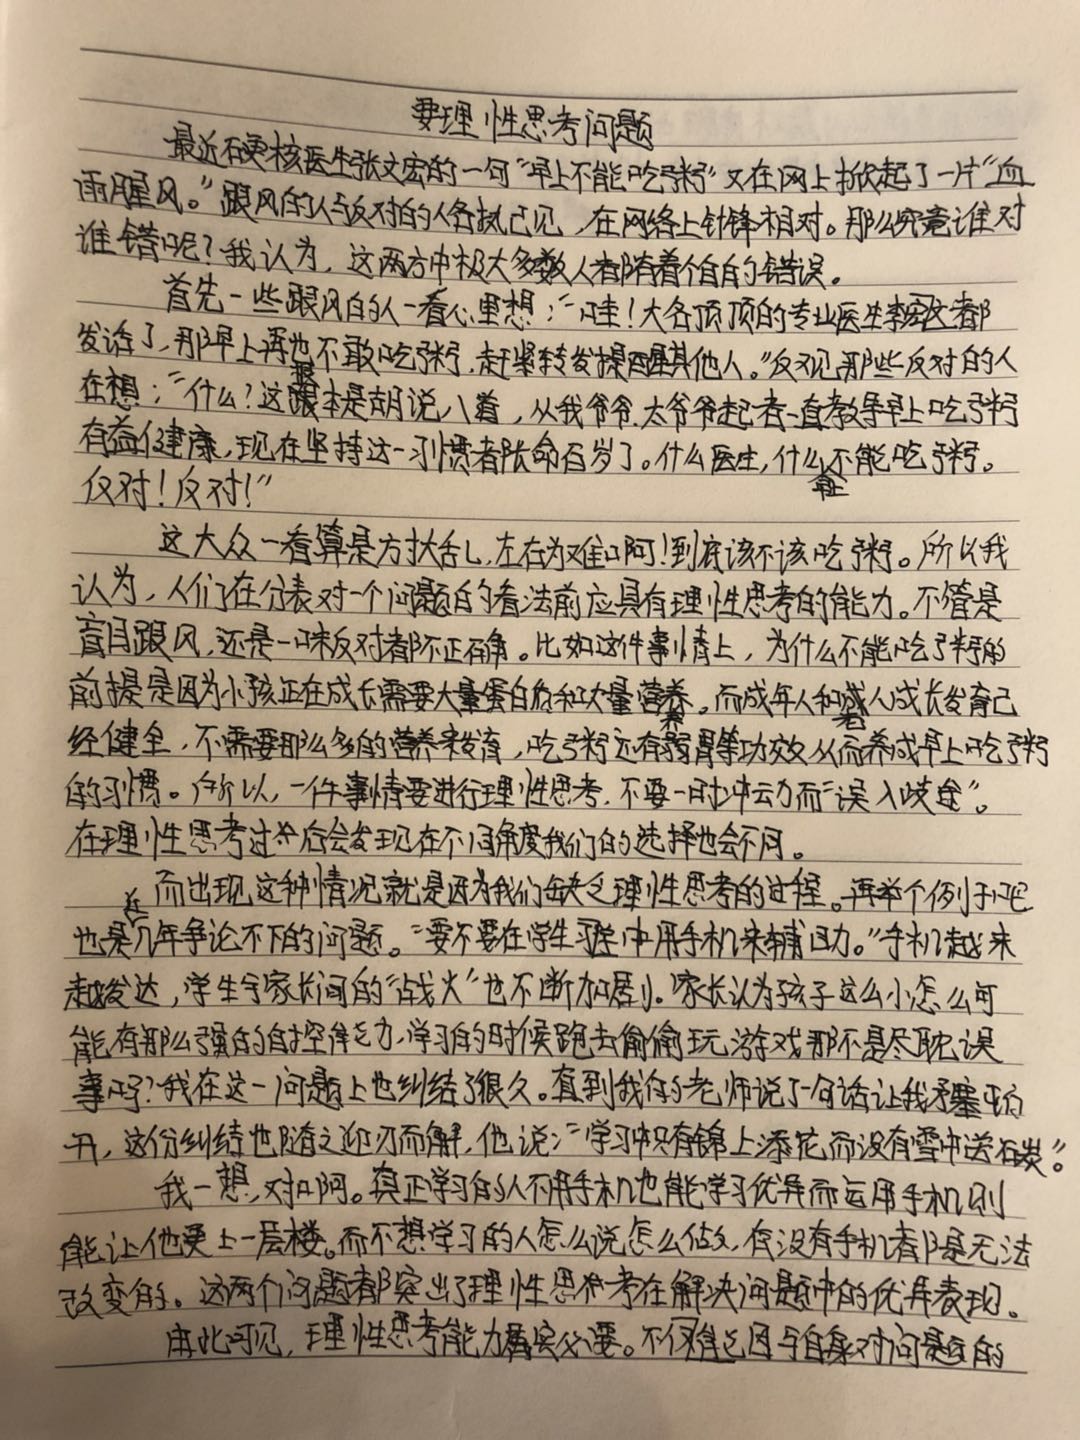 要理性思考问题
最近硬核医生张文宏的一句“早上不能吃粥”又在网上掀起了一片“血
雨腥风。”跟风的人与反对的人各执己见，在网络上针锋相对。那么究竟谁对
谁错呢？我认为，这两方中极大多数人都有着个自的错误。
首先一些跟风的人一看心里想：“哇！大名顶顶的专业医生李宏文都
发话了，那早上再也不敢吃粥，赶紧转发提醒其他人。”反观那些反对的人
在想：“什么？这根本是胡说八道，从我爷爷.太爷爷起者一直教导早上吃粥
有益健康，现在坚持这一习惯者长命百岁了。什么医生，什么早上不能吃粥。
仅对！反对！”
这大众一看算是方寸大乱，左右为难啊！到底该不该吃粥。所以我
认为，人们在分表对一个问题的看法前应具有理性思考的能力。不管是
盲目跟风，还是一味反对都不正确。比如这件事情上，为什么不能吃粥的
前提是因为小孩正在成长需要大量蛋白质和大量营养。而成年人和老人成长发育已
经健全，不需要那么多的营养来发育，吃粥还有弱胃等功效从而养成早上吃粥
的习惯。所以，一件事情要进行理性思考，不要一时冲动而“误入歧途”。
在理性思考过 后会发现在不同角度我们的选择也会不同。
而出现这种情况就是因为我们缺乏理性思考的过程。再举个例子吧
也是近几年争论不下的问题。“要不要在学生习中用手机来辅助。”手机越来
越发达，学生与家长间的“战火”也不断加剧。家长认为孩子这么小怎么可
能有那么强的自控能力，学习的时候跑去偷偷玩游戏那不是尽耽误
事吗？我在这一问题上也纠结了很久。直到我的老师说了一句话让我茅塞顿
开，这份纠结也随之迎刃而解，他说：“学习中只有锦上添花而没有雪中送炭。”
我一想，对啊。真正学习的人不用手机也能学习优异而运用手机则
能让他更上一层楼。而不想学习的人怎么说怎么做，有没有手机都是无法
改变的。这两个问题都突出了理性思考在解决问题中的优异表现。
由此可见，理性思考能力属实必要。不仅能 因于自身对问题的